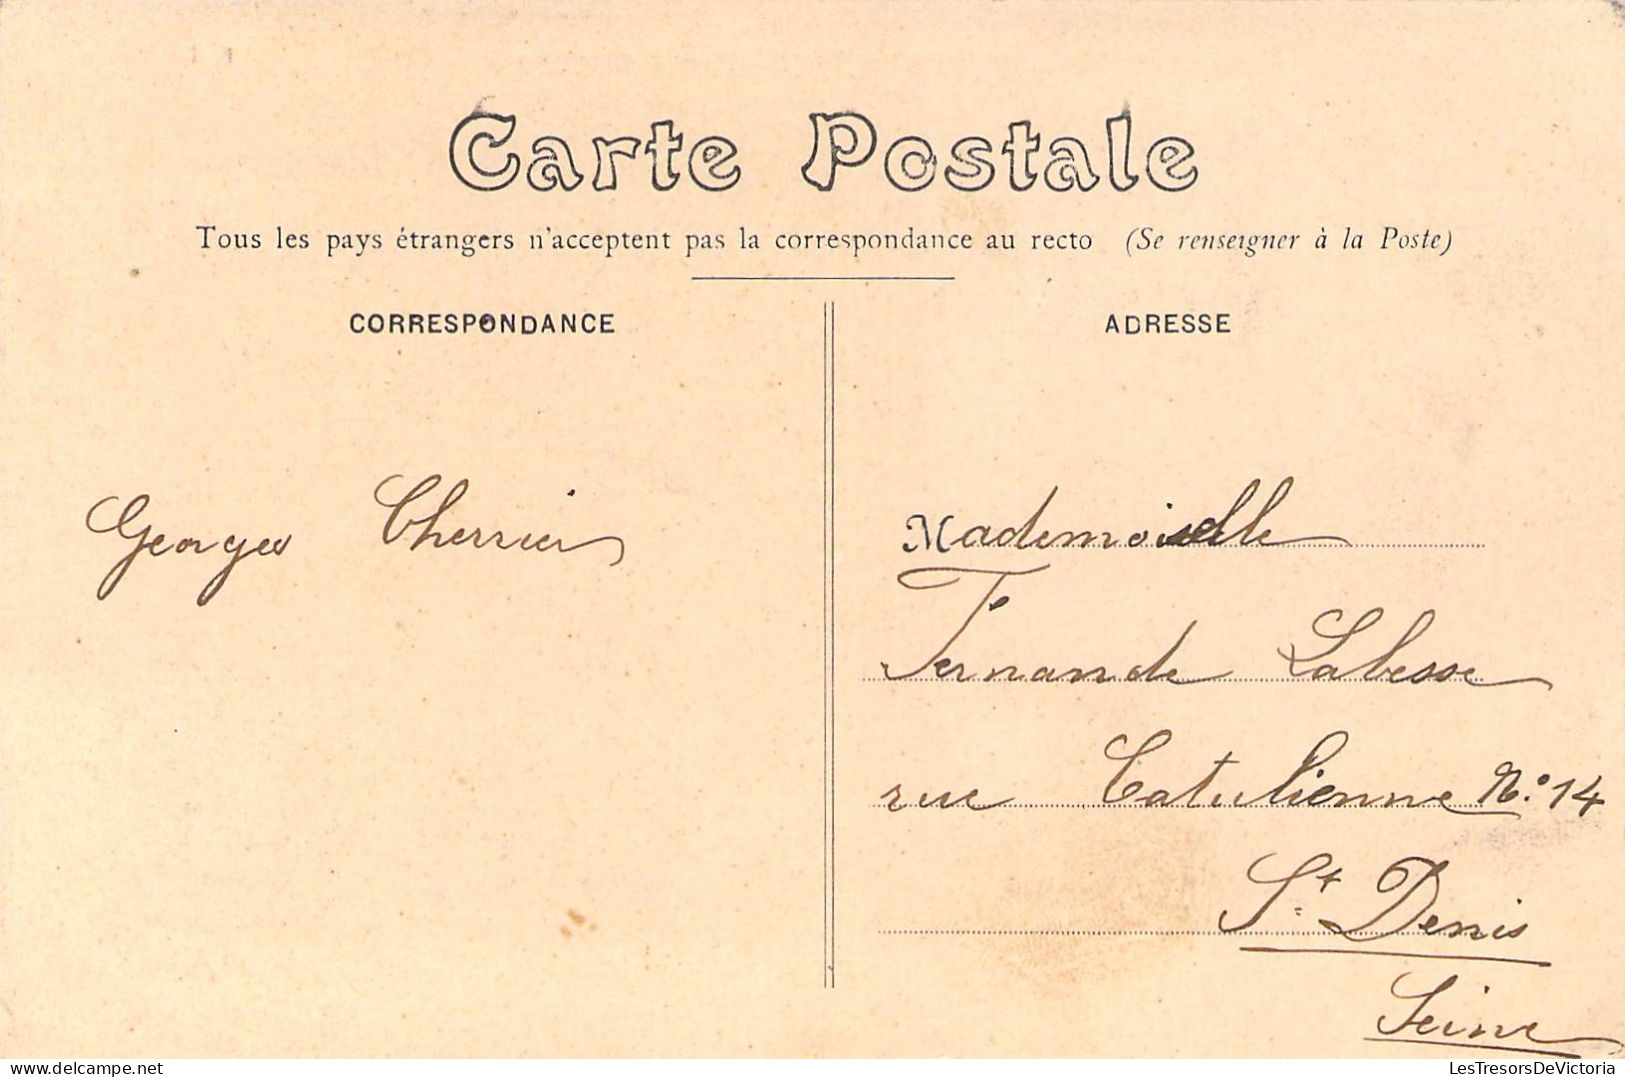 Carte Postale
Tous les pays étrangers n'acceptent pas la correspondance au recto (Se renseigner à la Poste)
CORRESPONDANCE
Georges Cherrier
ADRESSE
Mademoiselle
Fernande Labesse
rue Catulienne N° 14
St Denis
Seine
LesTresorsDeVictoria